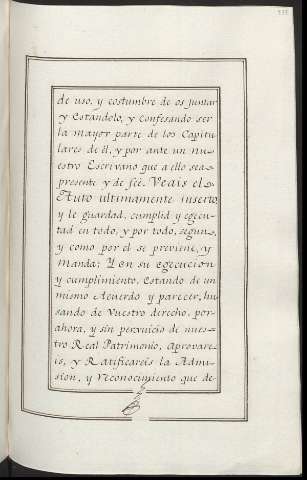 de uso, y costumbre de os juntar
y Estandolo, y confesando ser
la mayor parte de los Capitu-
lares de èl, y por ante un nu-
estro Escrivano que a ello sea
presente y de feè. Veais el
Auto ultimamente inserto
y le guardad, cumplid y egecu-
tad en todo, y por todo, segun,
y como por el se previene, y
manda; Y en su egecucion
y cumplimiento, estando de un
mismo Acuerdo y parecer, hu-
sando de Vuestro derecho, por-
ahora, y sin perjuicio de nues-
tro Real Patrimonio, Aprovare-
is, y Ratificareis la Admi-
sion, y reconocimiento que de-